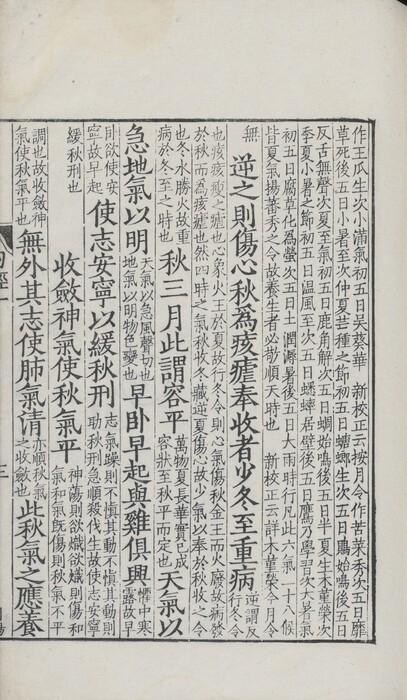 作王瓜生次小滿氣初五日吴葵華 新校正云按月令作苦菜秀次五日靡
草死後五日小暑至次仲夏芒種之節初五日螗螂生次五日鵙始鳴後五日
反舌無聲次夏至氣初五日鹿角解次五日蜩始鳴後五日半夏生木菫榮次
季夏小暑之節初五日温風至次五日蟋蟀居壁後五日鷹乃學習次大暑氣
初五日腐草化為螢次五日土潤溽暑後五日大雨時行凡此六氣一十八候
皆夏氣揚蕃秀之令故養生者必敬順天時也 新校正云詳木菫榮今月令
無 逆之則傷心秋為痎瘧奉收者少冬至重病 逆謂反行冬令
也痎痎瘦之瘧也心象火王於夏故行冬令則心氣傷秋金王而火廢故病發
於秋而為痎瘧也然四時之氣秋收冬藏逆夏傷心故少氣以奉於秋收之令
也冬水勝火故重病於冬至之時也 秋三月此謂容平 萬物夏長華實已成容狀至秋平而定也 天氣以
急地氣以明 天氣以急風聲切也地氣以明物色變也 早卧早起與雞俱興 懼中寒露故早
卧欲使安寧故早起 使志安寧以緩秋刑 志氣躁則不慎其動不慎其動則助秋刑急順殺伐生故使志安寧
緩秋刑也 收斂神氣使秋氣平 神蕩則欲熾欲熾則傷和氣和氣既傷則秋氣不平
調也故收斂神氣使秋氣平也 無外其志使肺氣清 亦順秋氣之收斂也 此秋氣之應養